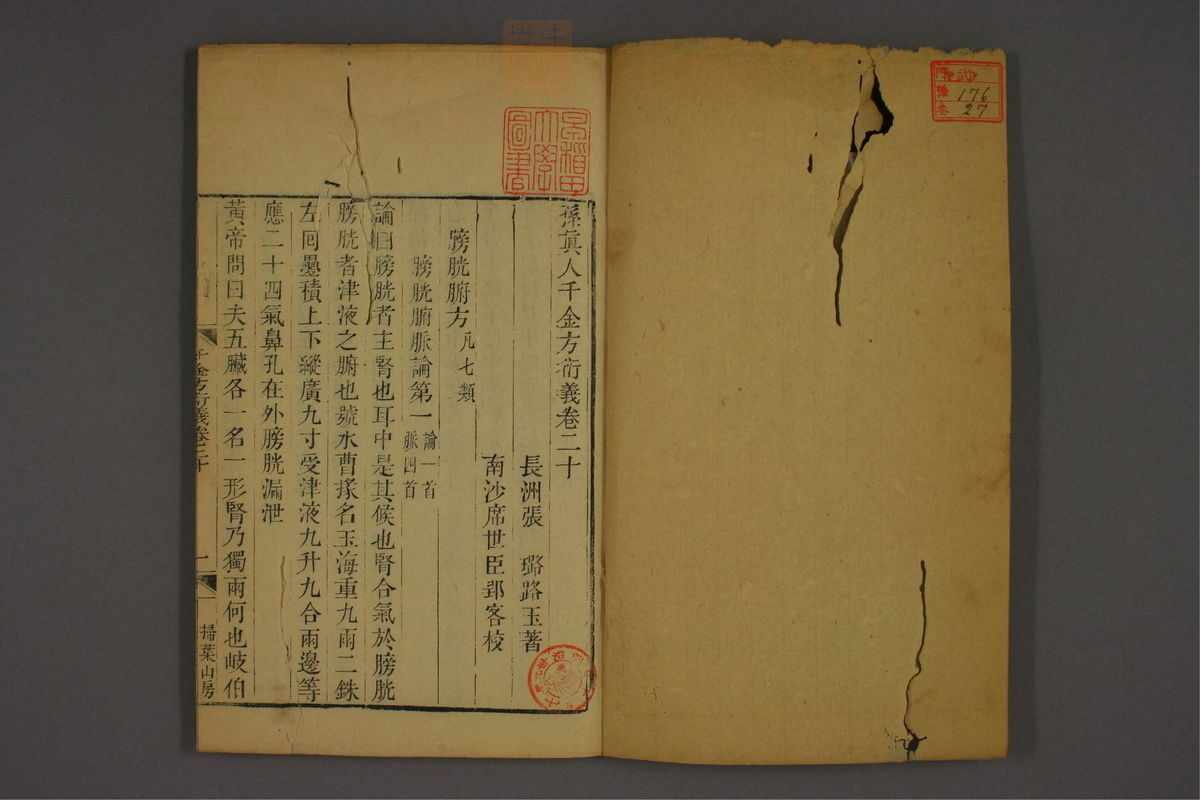 176
27
孫眞人千金方衍義卷二十
長洲張 璐路玉著
南沙席世臣郢客校
膀胱腑方凡七類
膀胱腑脈論第一論一首 脈四首
論曰膀胱者主腎也耳中是其候也腎合氣於膀胱
膀胱者津液之腑也號水曹掾名玉海重九兩二銖
左回疊積上下縱廣九寸受津液九升九合兩邊等
應二十四氣鼻孔在外膀胱漏泄
黃帝問曰夫五臟各一名一形腎乃獨兩何也岐伯
千金方衍義卷二十
一
掃葉山房
早稻田大學圖書